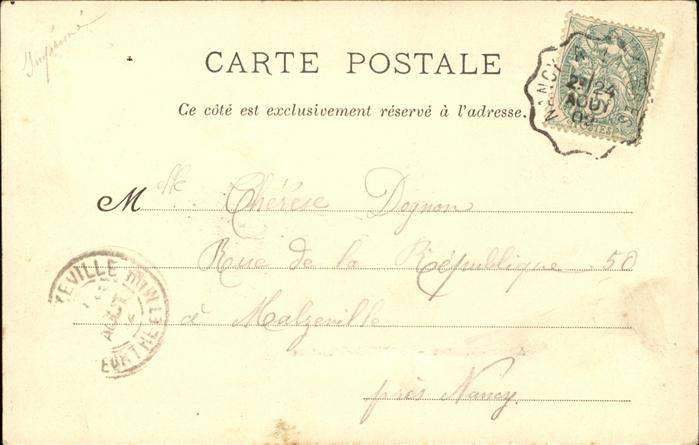 Imprimé
CARTE POSTALE
Ce côté est exclusivement réservé à l'adresse.
NANCY
23/24
AOUT
02
M lle Thérèse Dognon
Rue de la République 50
à Malzeville
près Nancy
ZEVILLE MEURTHE
AOUT